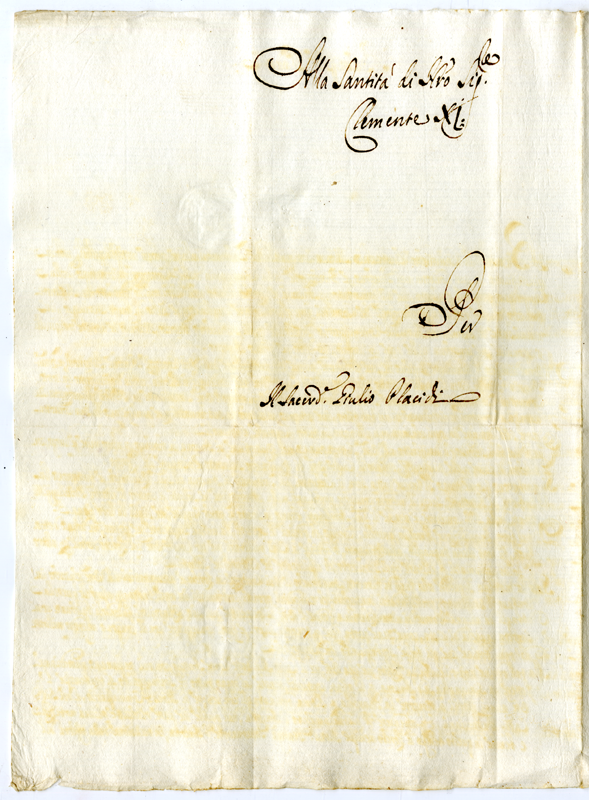 Alla Santita' di Nro Sig.re
Clemente XI.
Per
Il Sacerd.e Giulio Placidi